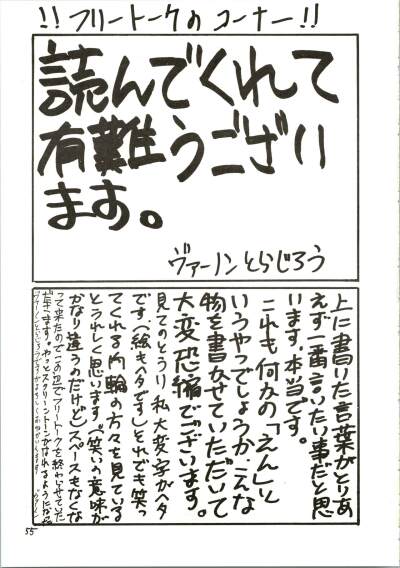 !!フリートークのコーナー!!
読んでくれて
有難うござい
ます。
ヴァーノンとらじろう
上に書いた言葉がとりあ
えず一番言いたい事だと思
います。本当です。
これも何かの「えん」と
いうやつでしょうか、こんな
物を書かせていただいて
大変恐縮でございます。
見てのとうり私大変字がヘタ
です、(絵もヘタです)それでも笑っ
てくれる内輪の方々を見ている
とうれしく思います。(笑いの意味が
かなり違うのだけど)スペースもなくな
って来たのでこの辺でフリートークを終わらせていた
だきます。やっとスクリーントーンがはれるようになった
55